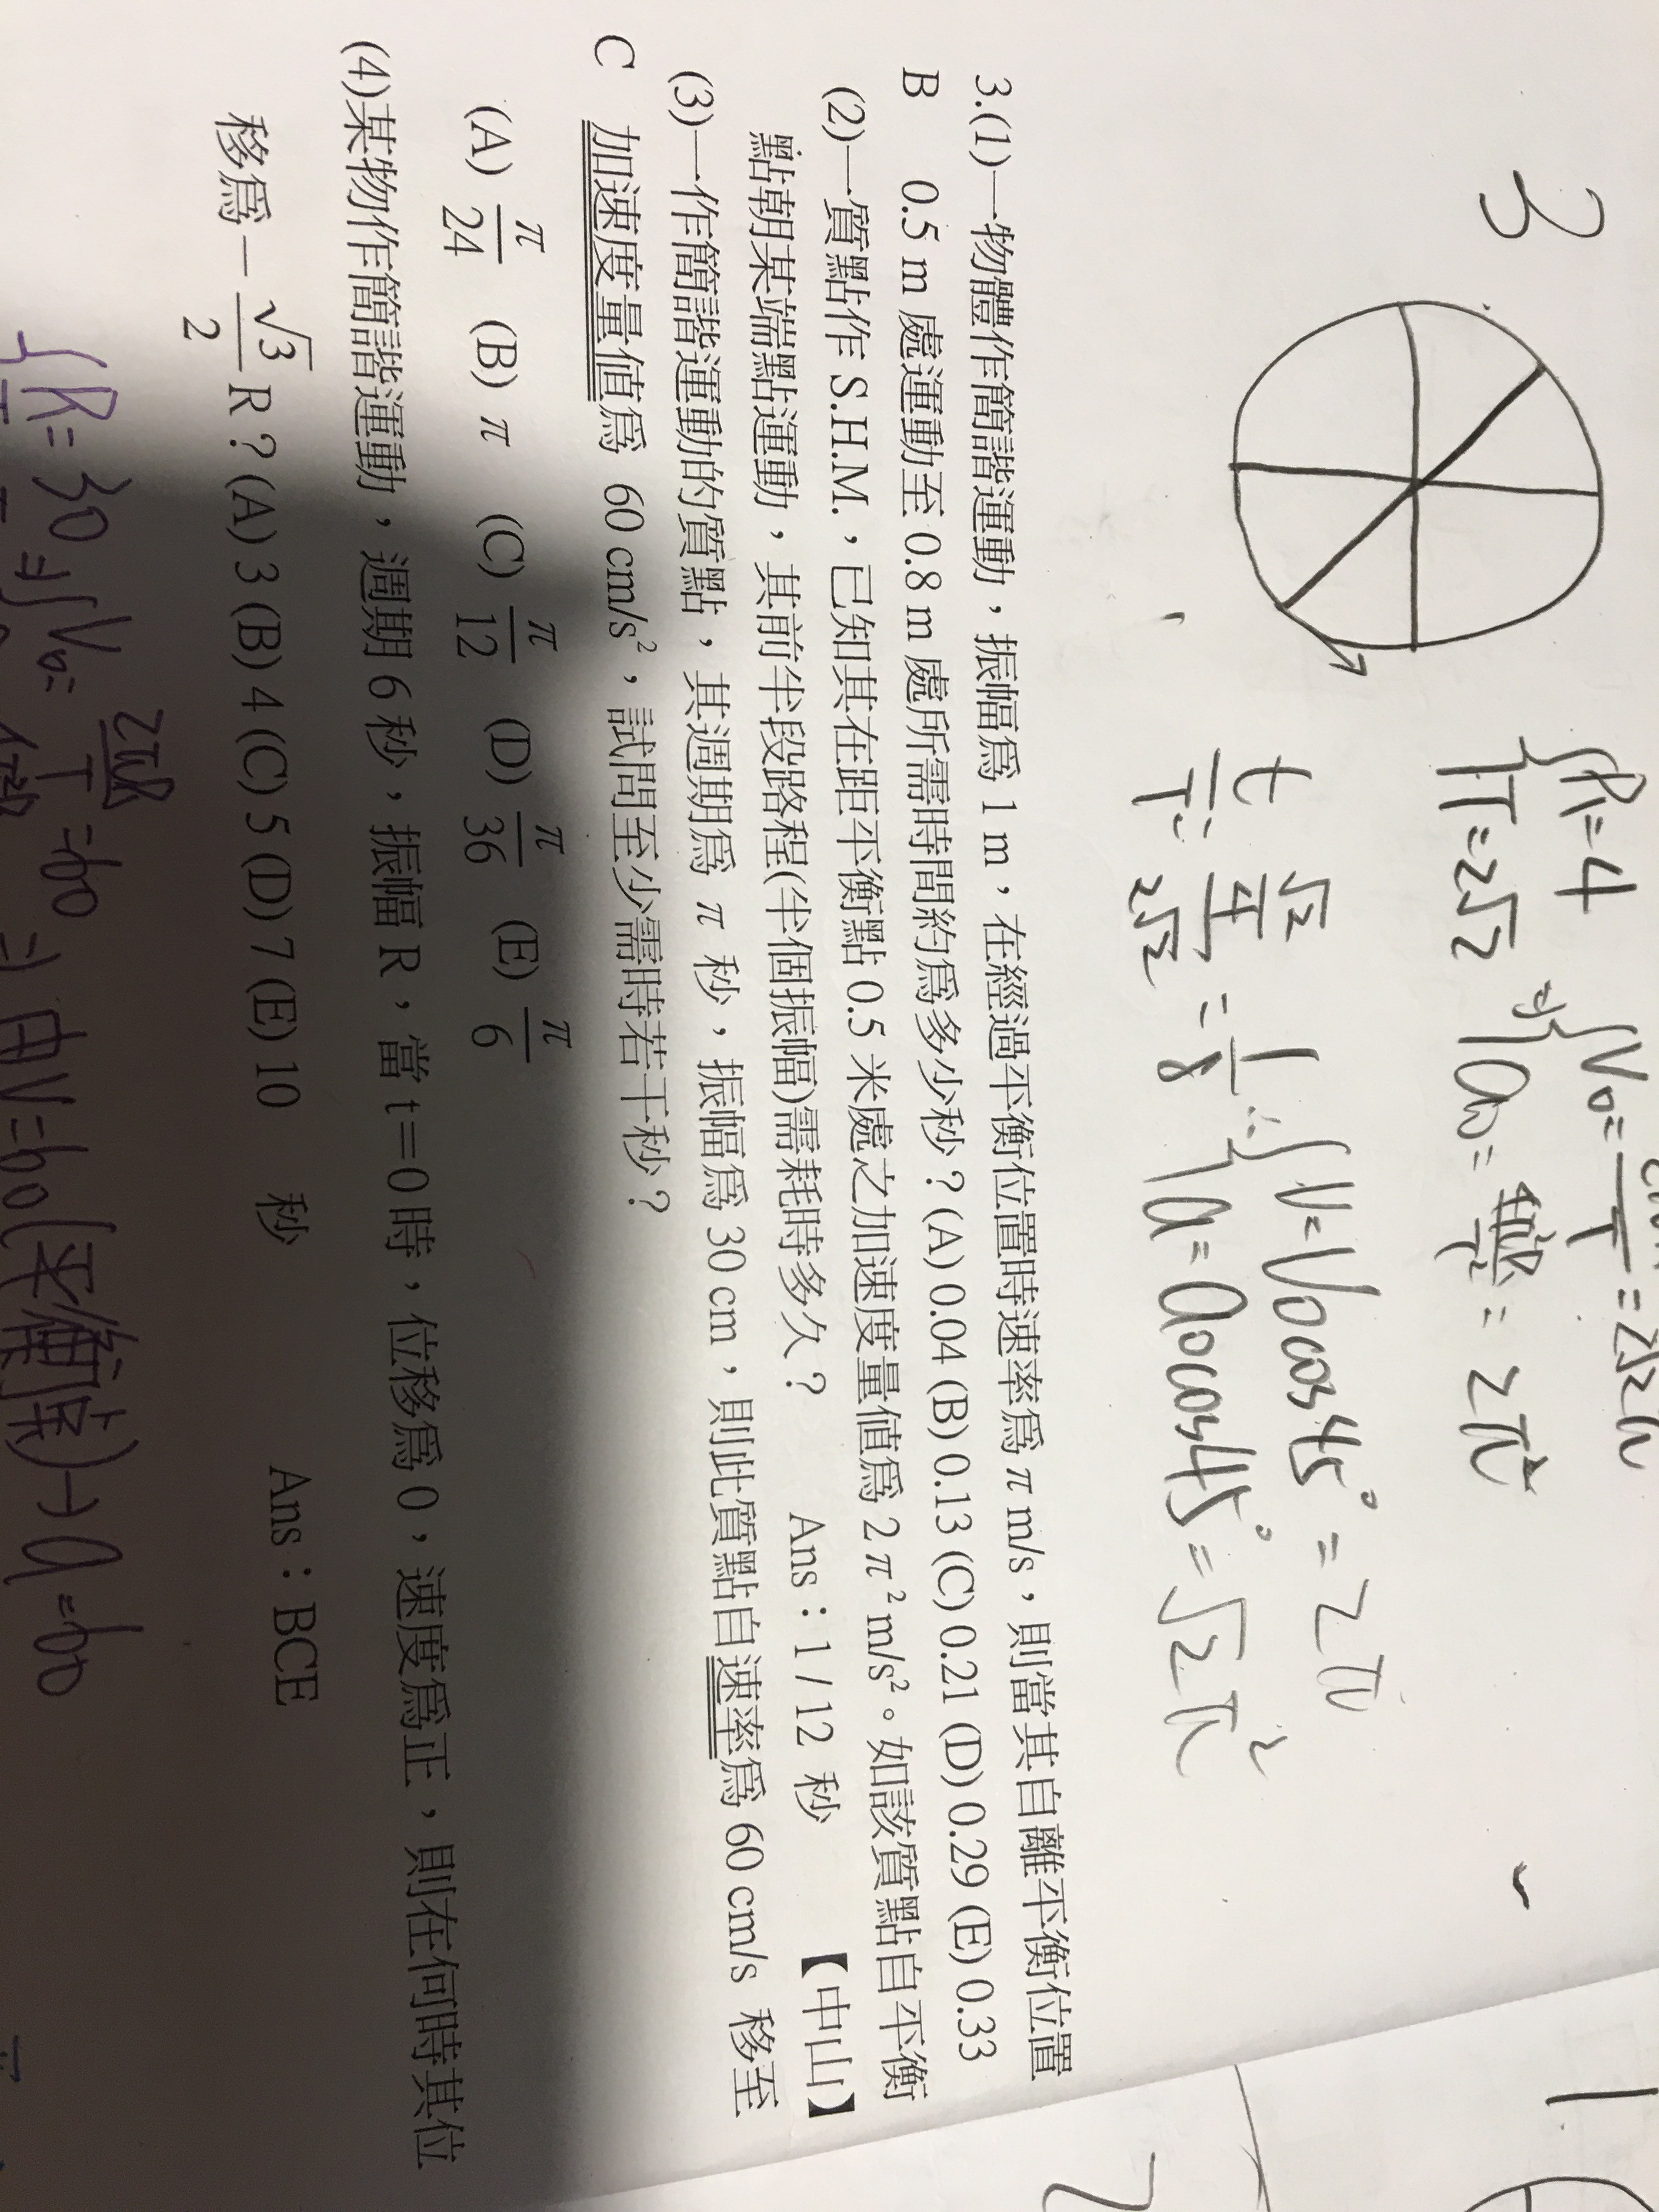 3
R=4
T=2√2
V₀=
=2√2π
a₀=
=2π²
t/T=
=1/8
V=V₀cos45°=2π
a=a₀cos45°=√2π²
3.(1)一物體作簡諧運動，振幅為 1 m，在經過平衡位置時速率為 π m/s，則當其自離平衡位置
B 0.5 m 處運動至 0.8 m 處所需時間約為多少秒？(A) 0.04 (B) 0.13 (C) 0.21 (D) 0.29 (E) 0.33
(2)一質點作 S.H.M.，已知其在距平衡點 0.5 米處之加速度量值為 2 π² m/s²。如該質點自平衡
點朝某端點運動，其前半段路程(半個振幅)需耗時多久？ Ans：1 / 12 秒 【中山】
(3)一作簡諧運動的質點，其週期為 π 秒，振幅為 30 cm，則此質點自速率為 60 cm/s 移至
C 加速度量值為 60 cm/s²，試問至少需時若干秒？
(A) π/24 (B) π (C) π/12 (D) π/36 (E) π/6
(4)某物作簡諧運動，週期 6 秒，振幅 R，當 t＝0 時，位移為 0，速度為正，則在何時其位
移為－√3/2 R？(A) 3 (B) 4 (C) 5 (D) 7 (E) 10 秒 Ans：BCE
R=30
V₀=2πR/T=60
由V=60(平衡點)→a=60